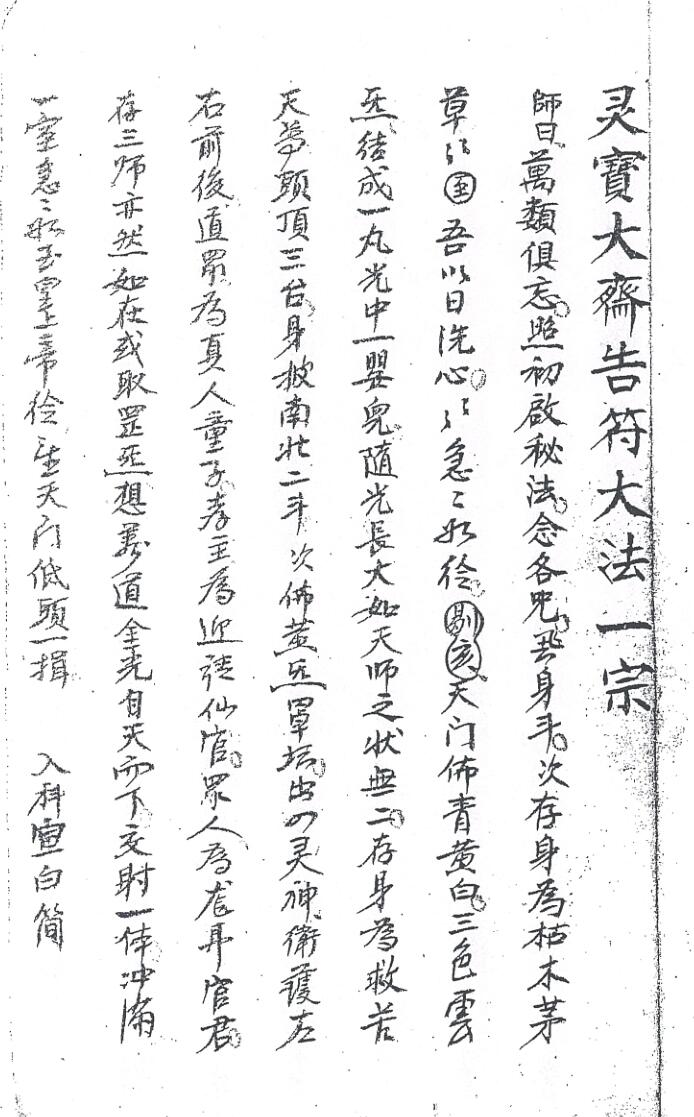 灵寳大齋告符大法一宗
師曰萬類俱忘照初啟秘法念各咒步身斗次存身為枯木茅
草以囸吾以日洗心以急〻如徐剔亥天门佈青黄白三色雲
炁結成一丸光中一嬰兒随光長大如天师之状無二存身為救苦
天尊頭頂三台身披南北二斗次佈黃炁罩坛出四灵神衛護左
右前後道眾為真人童子孝主為迎徒仙官眾人為龙耳官君
存三师亦然如在或取罡炁想蒡道金光自天而下交射一体冲满
一室急〻如玉皇上帝徐生天门低頭一揖 入科宣白简